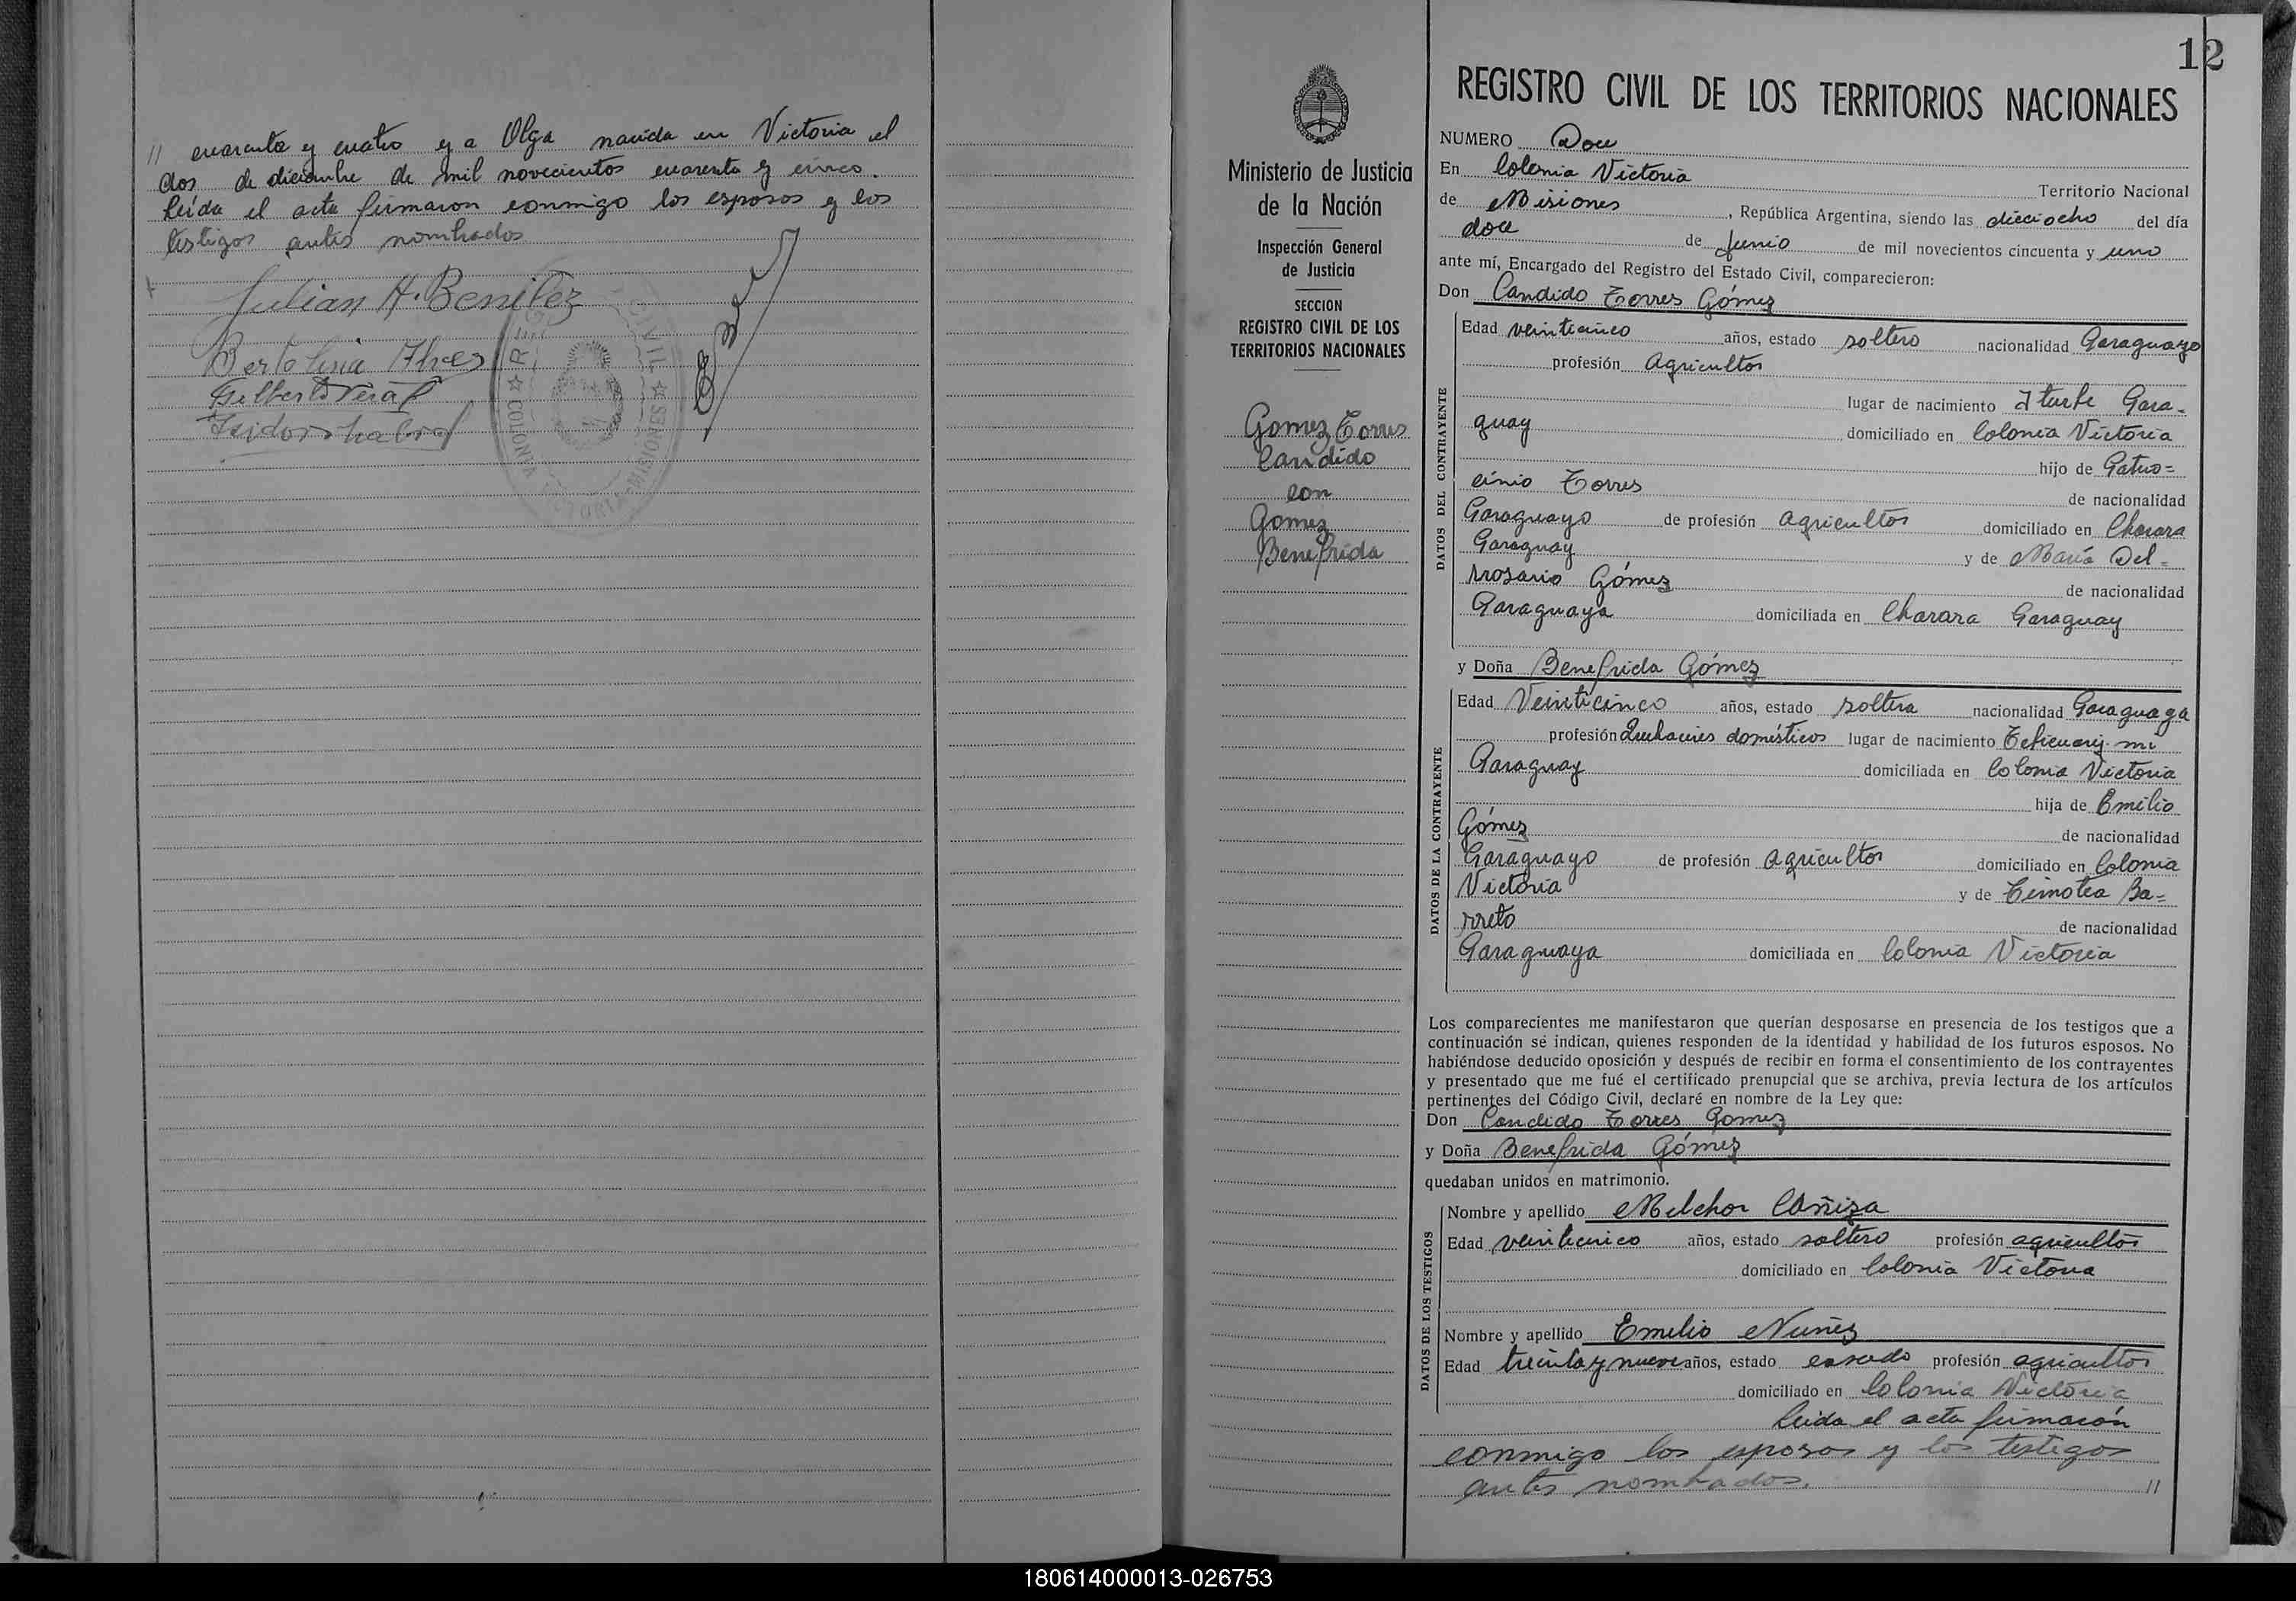 // cuarenta y cuatro y a Olga nacida en Victoria el
dos de diciembre de mil novecientos cuarenta y cinco.
Leída el acta firmaron conmigo los esposos y los
testigos antes nombrados
Julian A. Benitez
Gilberto Vera
COLONIA VICTORIA
CIVIL ☆ MISIONES
12
Ministerio de Justicia
de la Nación
Inspección General
de Justicia
SECCION
REGISTRO CIVIL DE LOS
TERRITORIOS NACIONALES
Gomez Torres
Candido
con
Gomez
Benefrida
REGISTRO CIVIL DE LOS TERRITORIOS NACIONALES
NUMERO Doce
En Colonia Victoria Territorio Nacional
de Misiones, República Argentina, siendo las dieciocho del día
doce de Junio de mil novecientos cincuenta y uno
ante mí, Encargado del Registro del Estado Civil, comparecieron:
Don Candido Torres Gómez
DATOS DEL CONTRAYENTE
Edad veinticinco años, estado soltero nacionalidad Paraguayo
profesión Agricultor
lugar de nacimiento Iturbe Para-
guay domiciliado en Colonia Victoria
hijo de Patro=
cinio Torres de nacionalidad
Paraguayo de profesión agricultor domiciliado en Charara
Paraguay y de María Del=
rrosario Gómez de nacionalidad
Paraguaya domiciliada en Charara Paraguay
y Doña Benefrida Gómez
DATOS DE LA CONTRAYENTE
Edad Veinticinco años, estado soltera nacionalidad Paraguaya
profesión Quehaceres domésticos lugar de nacimiento Tebicuary-mi
Paraguay domiciliada en Colonia Victoria
hija de Emilio
Gómez de nacionalidad
Paraguayo de profesión agricultor domiciliado en Colonia
Victoria y de Timotea Ba=
rreto de nacionalidad
Paraguaya domiciliada en Colonia Victoria
Los comparecientes me manifestaron que querían desposarse en presencia de los testigos que a
continuación se indican, quienes responden de la identidad y habilidad de los futuros esposos. No
habiéndose deducido oposición y después de recibir en forma el consentimiento de los contrayentes
y presentado que me fué el certificado prenupcial que se archiva, previa lectura de los artículos
pertinentes del Código Civil, declaré en nombre de la Ley que:
Don Candido Torres Gomez
y Doña Benefrida Gómez
quedaban unidos en matrimonio.
DATOS DE LOS TESTIGOS
Nombre y apellido Melchor Cañiza
Edad veinticinco años, estado soltero profesión agricultor
domiciliado en Colonia Victoria
Nombre y apellido Emilio Nuñez
Edad treinta y nueve años, estado casado profesión agricultor
domiciliado en Colonia Victoria
Leida el acta firmarón
conmigo los esposos y los testigos
antes nombrados. //
180614000013-026753